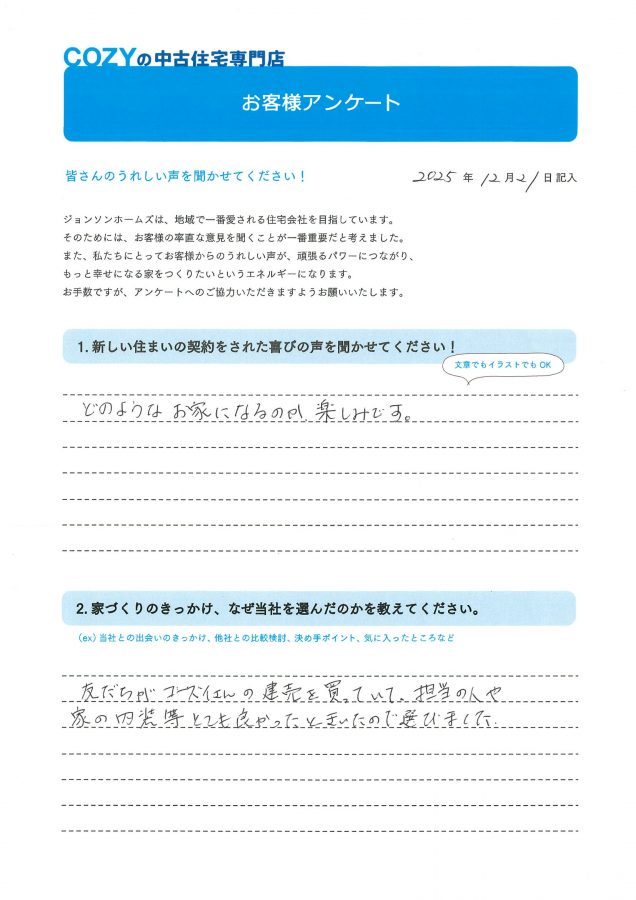 COZYの中古住宅専門店
お客様アンケート
皆さんのうれしい声を聞かせてください！
2025 年 12 月 21 日 記入
ジョンソンホームズは、地域で一番愛される住宅会社を目指しています。
そのためには、お客様の率直な意見を聞くことが一番重要だと考えました。
また、私たちにとってお客様からのうれしい声が、頑張るパワーにつながり、
もっと幸せになる家をつくりたいというエネルギーになります。
お手数ですが、アンケートへのご協力いただきますようお願いいたします。
1. 新しい住まいの契約をされた喜びの声を聞かせてください！
文章でもイラストでも OK
どのようなお家になるのか、楽しみです。
2. 家づくりのきっかけ、なぜ当社を選んだのかを教えてください。
（ex）当社との出会いのきっかけ、他社との比較検討、決め手ポイント、気に入ったところなど
友だちがコーズィさんの建売を買っていて、担当の人や
家の内装等とても良かったときいたので選びました。